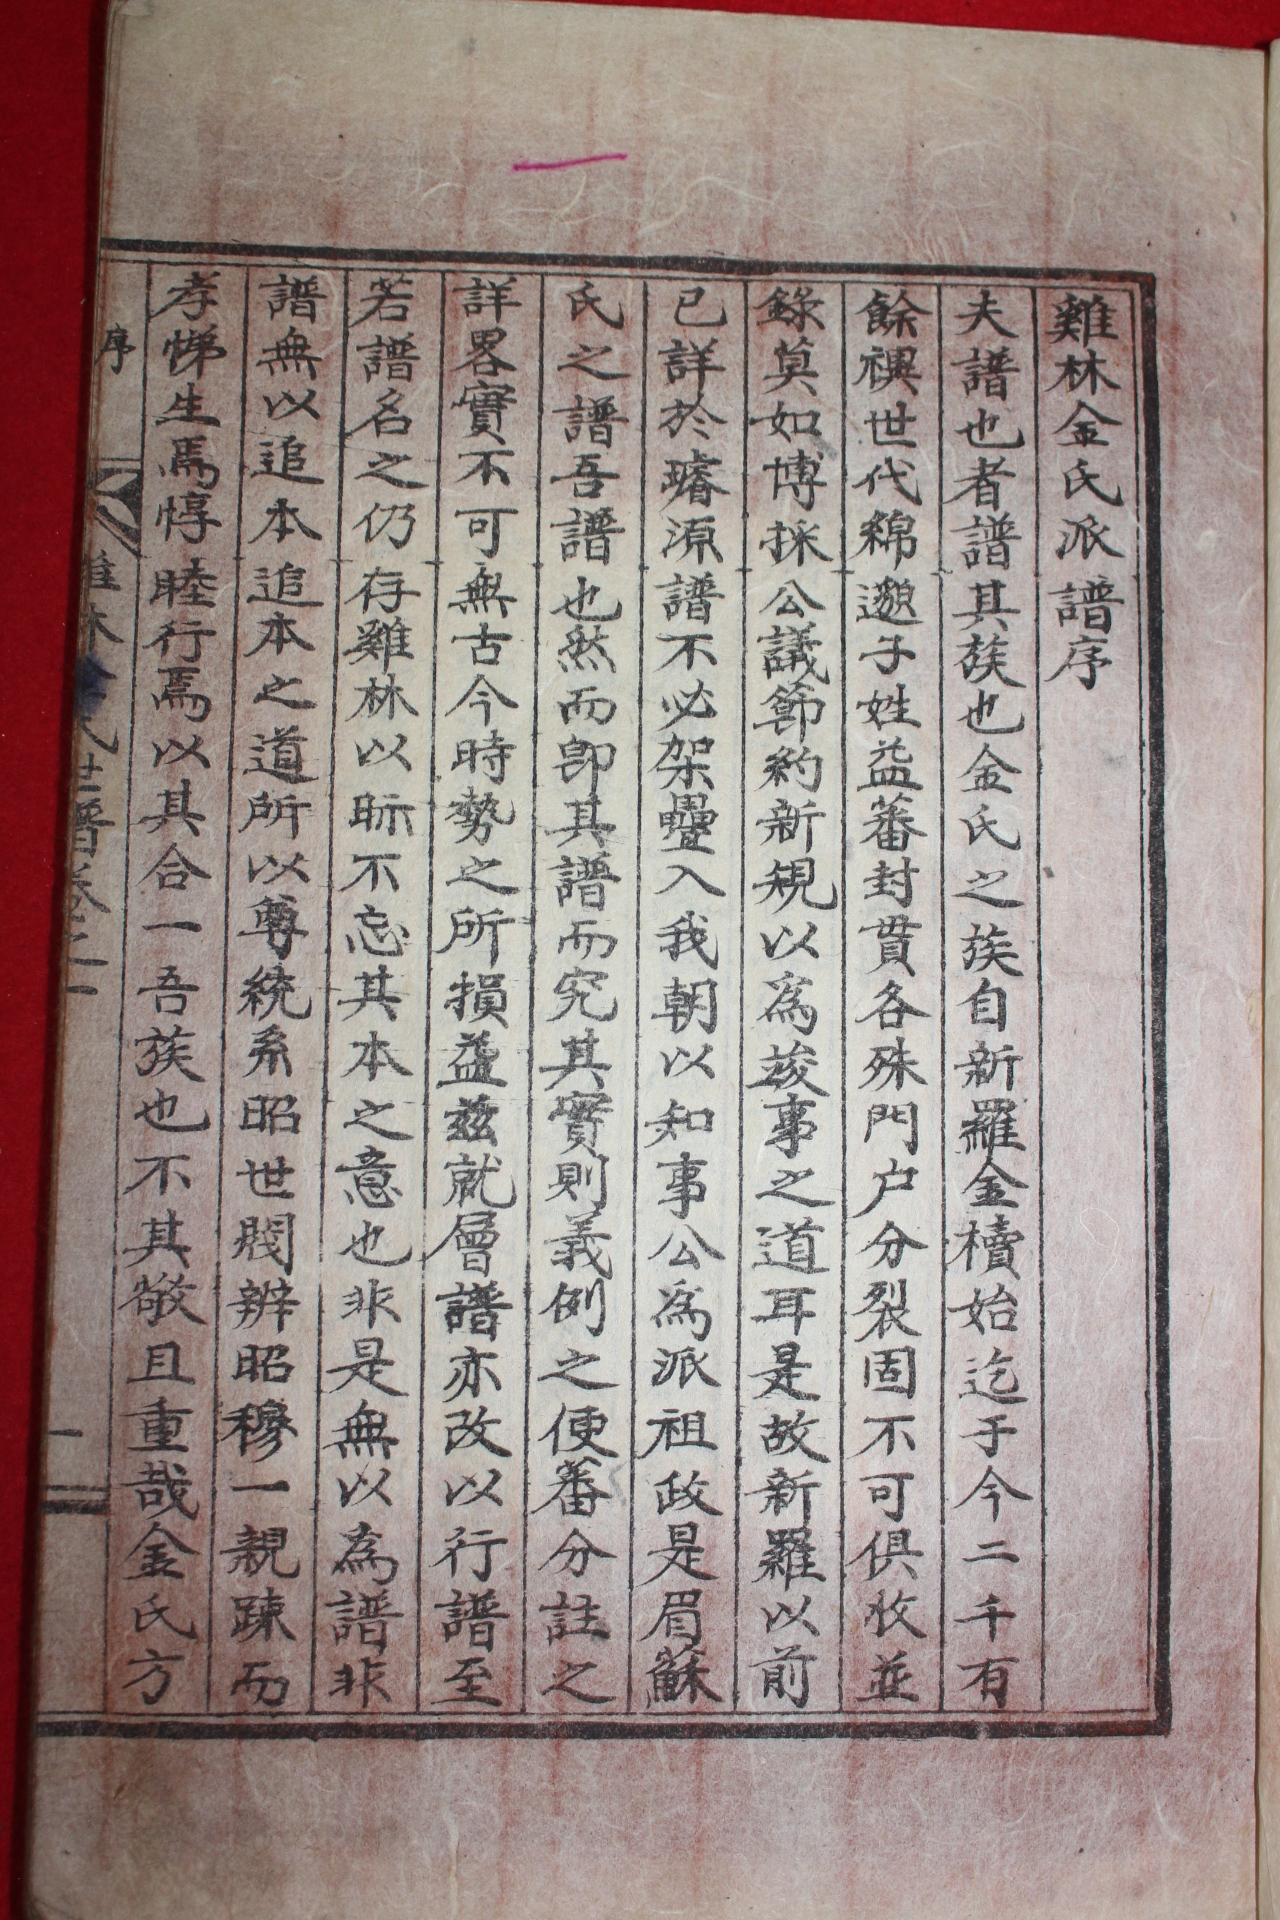 雞林金氏派譜序
夫譜也者譜其蔟也金氏之蔟自新羅金櫝始迄于今二千有
餘禩世代綿邈子姓益蕃封貫各殊門户分裂固不可俱收並
錄莫如博採公議節約新規以爲竣事之道耳是故新羅以前
已詳於璿源譜不必架疊入我朝以知事公爲派祖政是眉蘇
氏之譜吾譜也然而卽其譜而究其實則義例之便蕃分註之
詳畧實不可無古今時勢之所損益玆就層譜亦改以行譜至
若譜名之仍存雞林以眎不忘其本之意也非是無以為譜非
譜無以追本追本之道所以尊統系昭世閥辨昭穆一親踈而
孝悌生焉惇睦行焉以其合一吾蔟也不其敬且重哉金氏方
序
雞林金氏世譜卷之一
一